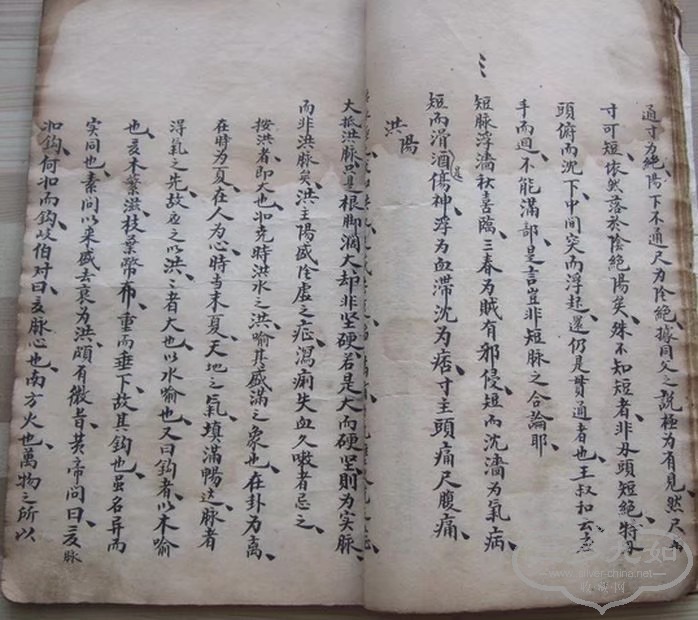 通寸为绝陽下不通尺为陰絶據同父之說極为有見然尺
寸可短依然落於陰絶陽矣殊不知短者非头頭短絶特
頭俯而沈下中間突而浮起還仍是貫通者也王叔和云
手而迴不能滿部是言豈非短脉之合論耶
短脉浮濇秋喜臨三春为賊有邪侵短而沈濇为氣病
短而滑酒傷神浮为血滞沈为痞寸主頭痛尺腹痛
洪陽
大抵洪脉只是根脚濶大却非坚硬若是大而硬坚則为实脉
而非洪脉矣洪主陽盛陰虚之症瀉痢失血久嗽者忌之
按洪者即大也如尧時洪水之洪喻其盛滿之象也在卦为离
在時为夏在人为心時当末夏天地之氣填滿暢达脉者
浮氣之先故应之以洪〻者大也以水喻也又曰鈎者以木喻
也夏木蕃滋枝葉幣布重而垂下故其鈎也虽名异而
实同也素问以来盛去衰为洪頗有微旨黄帝問曰夏脉
如鈎何如而鈎歧伯对曰夏脉心也南方火也萬物之所以
www.silver-china.net
收藏网